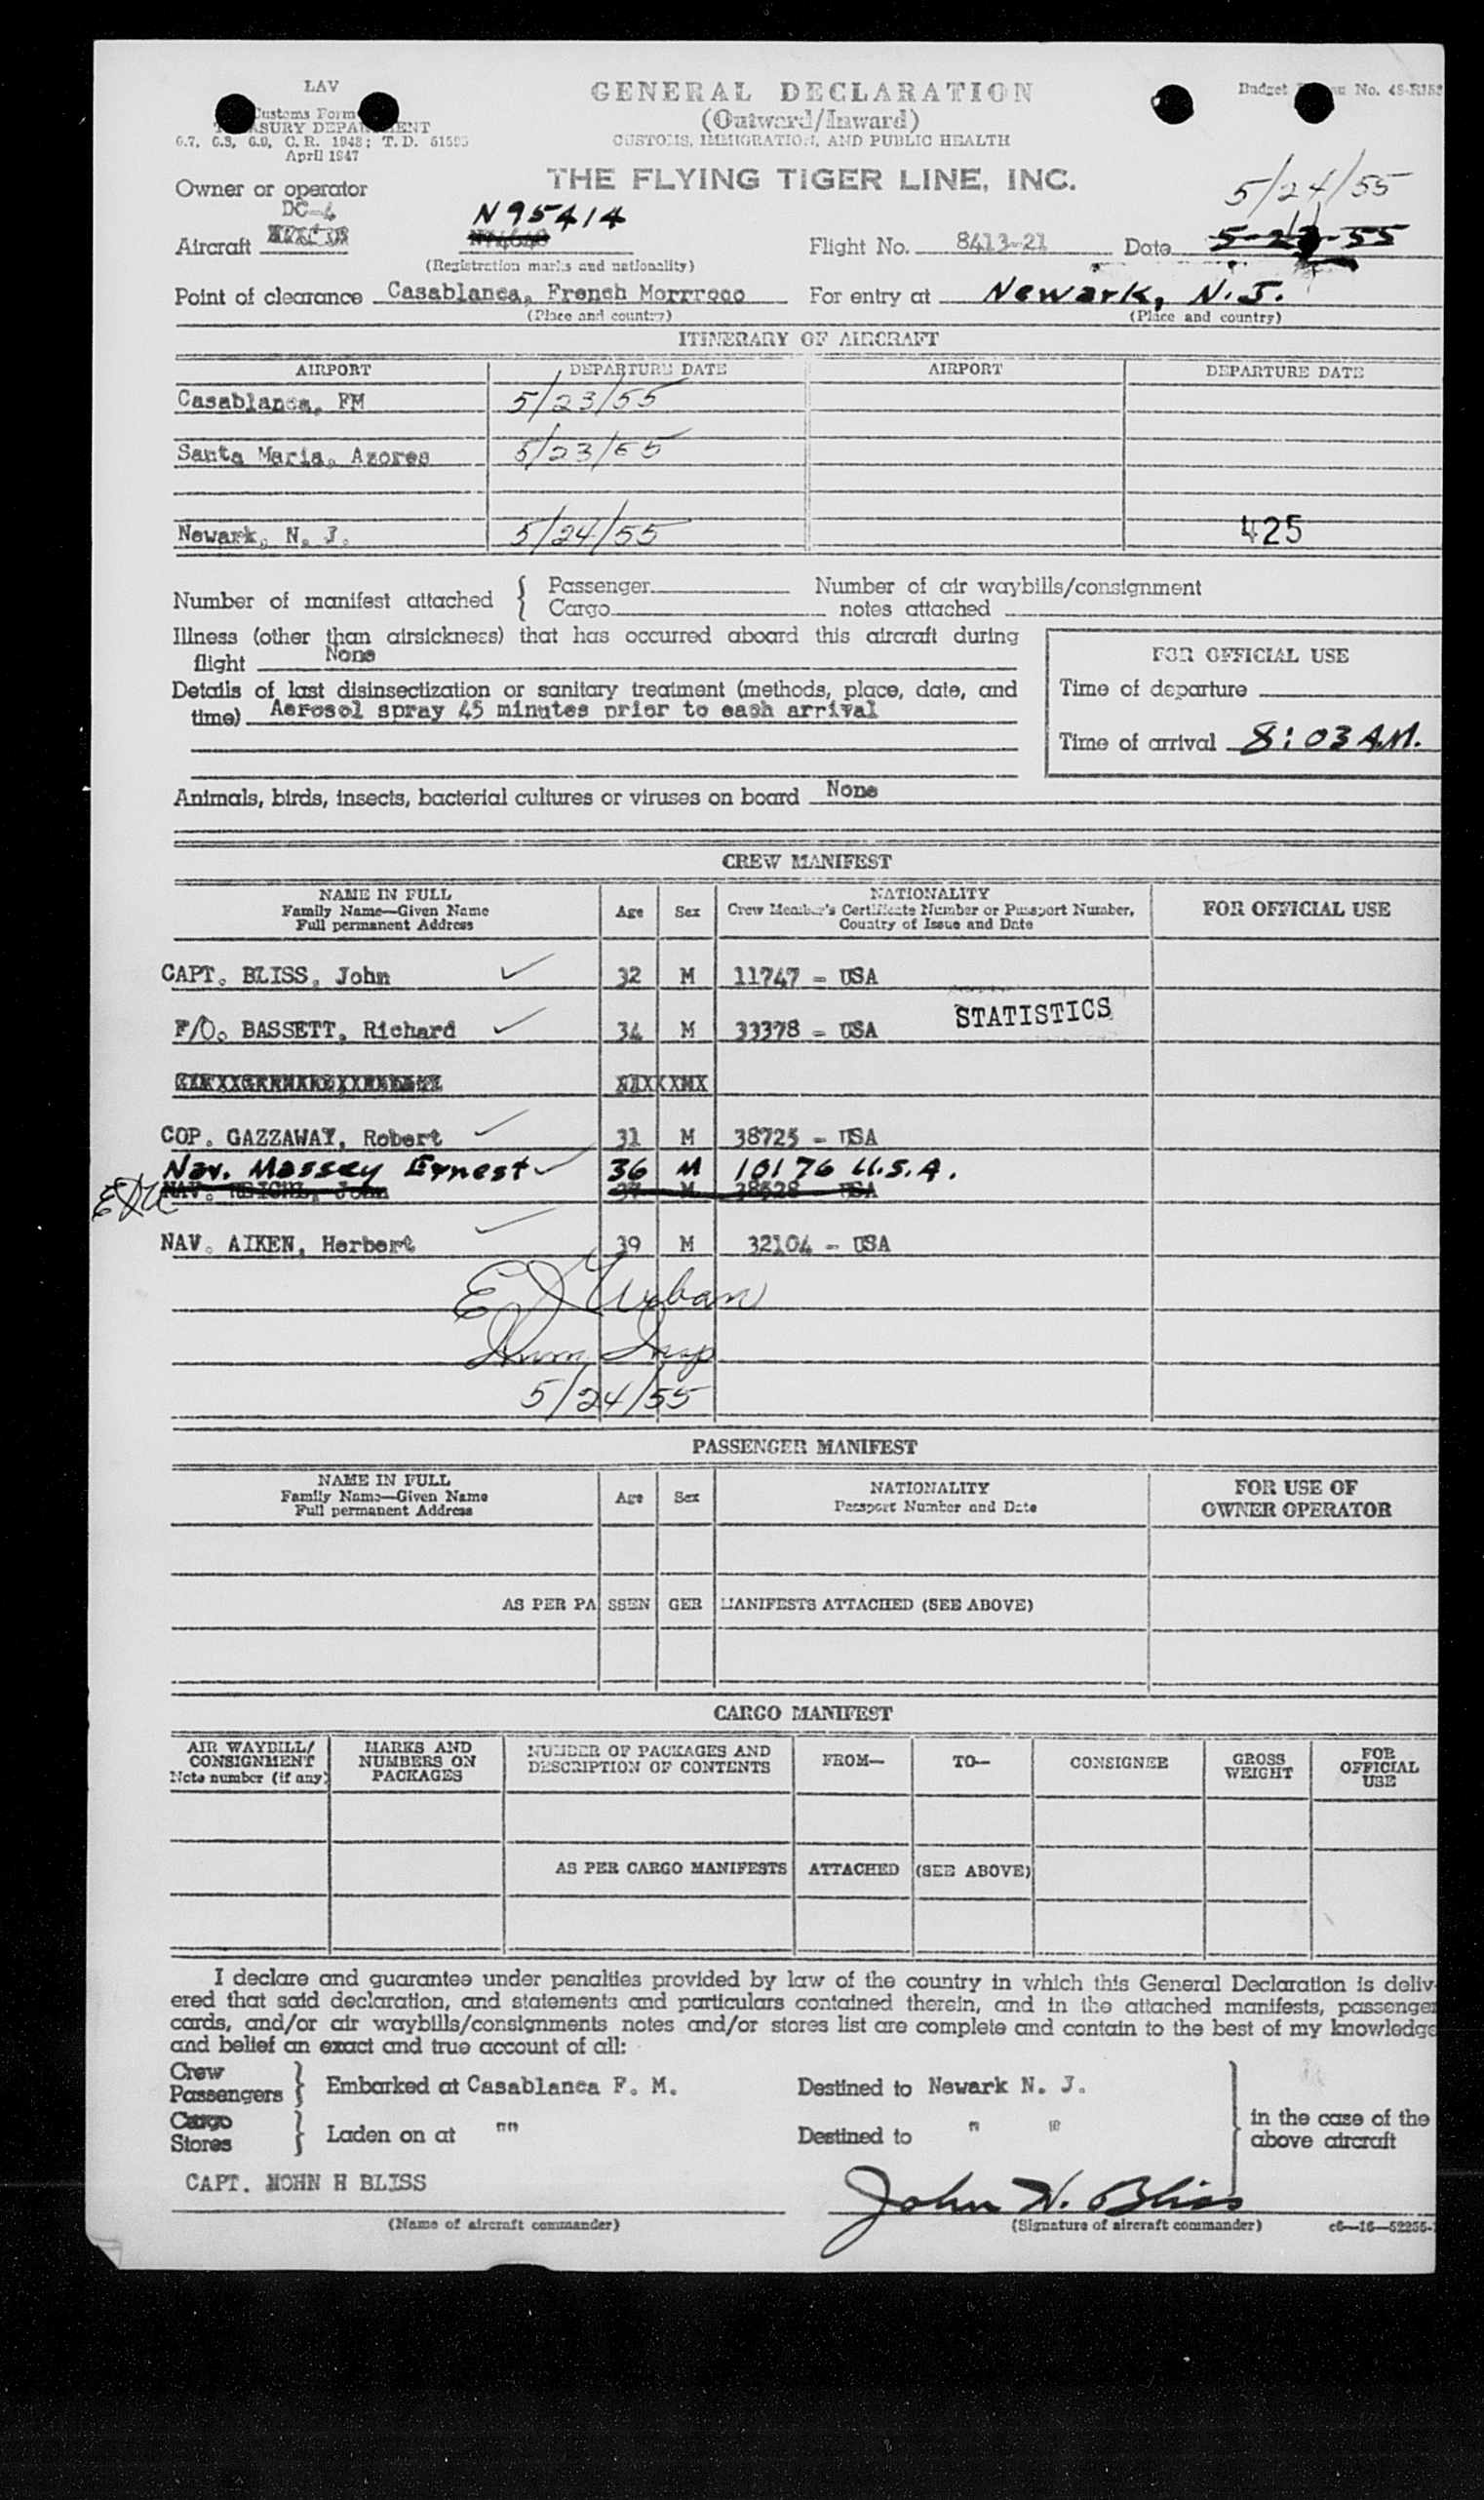 LAV
Customs Form
TREASURY DEPARTMENT
6.7, 6.8, 6.9, C. R. 1943; T. D. 51595
April 1947
GENERAL DECLARATION
(Outward/Inward)
CUSTOMS, IMMIGRATION, AND PUBLIC HEALTH
Budget No. 48-R152
THE FLYING TIGER LINE, INC.
Owner or operator
5/24/55
DC-4
N95414
Aircraft
Flight No. 8413-21 Date 5-23-55
(Registration marks and nationality)
Point of clearance Casablanca, French Morrroco For entry at Newark, N.J.
(Place and country) (Place and country)
ITINERARY OF AIRCRAFT
AIRPORT DEPARTURE DATE AIRPORT DEPARTURE DATE
Casablanca, FM 5/23/55
Santa Maria, Azores 5/23/55
Newark, N. J. 5/24/55 425
Number of manifest attached { Passenger Number of air waybills/consignment
Cargo notes attached
Illness (other than airsickness) that has occurred aboard this aircraft during
flight None
Details of last disinsectization or sanitary treatment (methods, place, date, and
time) Aerosol spray 45 minutes prior to each arrival
FOR OFFICIAL USE
Time of departure
Time of arrival 8:03 A.M.
Animals, birds, insects, bacterial cultures or viruses on board None
CREW MANIFEST
NAME IN FULL
Family Name—Given Name
Full permanent Address
Age Sex
NATIONALITY
Crew Member's Certificate Number or Passport Number,
Country of Issue and Date
FOR OFFICIAL USE
CAPT. BLISS, John 32 M 11747 - USA
STATISTICS
F/O. BASSETT, Richard 34 M 33378 - USA
COP. GAZZAWAY, Robert 31 M 38725 - USA
Nav. Massey Ernest 36 M 10176 U.S.A.
EDU NAV. REICHL, John 37 M 38528 USA
NAV. AIKEN, Herbert 39 M 32104 - USA
E D Urban
Imm Insp
5/24/55
PASSENGER MANIFEST
NAME IN FULL
Family Name—Given Name
Full permanent Address
Age Sex
NATIONALITY
Passport Number and Date
FOR USE OF
OWNER OPERATOR
AS PER PASSENGER MANIFESTS ATTACHED (SEE ABOVE)
CARGO MANIFEST
AIR WAYBILL/
CONSIGNMENT
Note number (if any)
MARKS AND
NUMBERS ON
PACKAGES
NUMBER OF PACKAGES AND
DESCRIPTION OF CONTENTS
FROM— TO— CONSIGNEE
GROSS
WEIGHT
FOR
OFFICIAL
USE
AS PER CARGO MANIFESTS ATTACHED (SEE ABOVE)
I declare and guarantee under penalties provided by law of the country in which this General Declaration is deliv-
ered that said declaration, and statements and particulars contained therein, and in the attached manifests, passenger
cards, and/or air waybills/consignments notes and/or stores list are complete and contain to the best of my knowledge
and belief an exact and true account of all:
Crew
Passengers } Embarked at Casablanca F. M. Destined to Newark N. J.
Cargo
Stores } Laden on at "" Destined to " "
in the case of the
above aircraft
CAPT. MOHN H BLISS John H. Bliss
(Name of aircraft commander) (Signature of aircraft commander) c6—16—52255-1